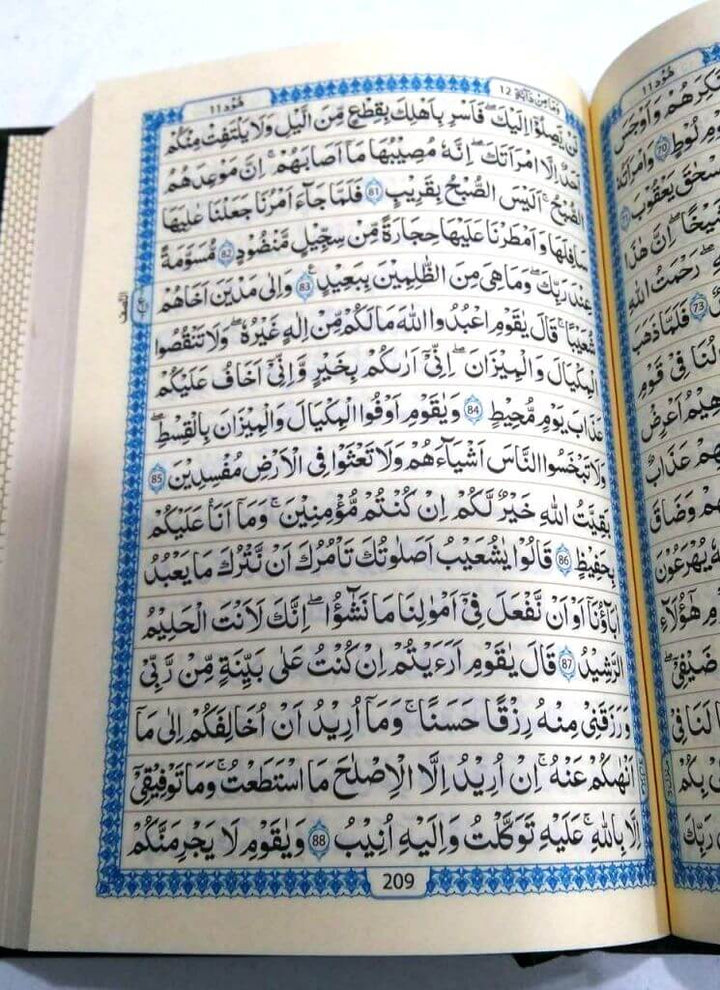 وَمَا مِنْ دَآبَّةٍ 12
هُوْد ۱۱
لَنْ يَّصِلُوْٓا اِلَيْكَ ۖ فَاَسْرِ بِاَهْلِكَ بِقِطْعٍ مِّنَ الَّيْلِ وَلَا يَلْتَفِتْ مِنْكُمْ
اَحَدٌ اِلَّا امْرَاَتَكَ ۖ اِنَّهٗ مُصِيْبُهَا مَآ اَصَابَهُمْ ۚ اِنَّ مَوْعِدَهُمُ
الصُّبْحُ ۚ اَلَيْسَ الصُّبْحُ بِقَرِيْبٍ 81 فَلَمَّا جَآءَ اَمْرُنَا جَعَلْنَا عَلِيَهَا
سَافِلَهَا وَاَمْطَرْنَا عَلَيْهَا حِجَارَةً مِّنْ سِجِّيْلٍ مَّنْضُوْدٍ 82 مُّسَوَّمَةً
عِنْدَ رَبِّكَ ۖ وَمَا هِيَ مِنَ الظّٰلِمِيْنَ بِبَعِيْدٍ ۠ 83 وَاِلٰى مَدْيَنَ اَخَاهُمْ
شُعَيْبًا ۚ قَالَ يٰقَوْمِ اعْبُدُوا اللّٰهَ مَا لَكُمْ مِّنْ اِلٰهٍ غَيْرُهٗ ۖ وَلَا تَنْقُصُوا
الْمِكْيَالَ وَالْمِيْزَانَ ۖ اِنِّيْٓ اَرٰىكُمْ بِخَيْرٍ وَّاِنِّيْٓ اَخَافُ عَلَيْكُمْ
عَذَابَ يَوْمٍ مُّحِيْطٍ 84 وَيٰقَوْمِ اَوْفُوا الْمِكْيَالَ وَالْمِيْزَانَ بِالْقِسْطِ ۖ
وَلَا تَبْخَسُوا النَّاسَ اَشْيَآءَهُمْ وَلَا تَعْثَوْا فِى الْاَرْضِ مُفْسِدِيْنَ 85
بَقِيَّتُ اللّٰهِ خَيْرٌ لَّكُمْ اِنْ كُنْتُمْ مُّؤْمِنِيْنَ ۚ وَمَآ اَنَا۠ عَلَيْكُمْ
بِحَفِيْظٍ 86 قَالُوْا يٰشُعَيْبُ اَصَلٰوتُكَ تَاْمُرُكَ اَنْ نَّتْرُكَ مَا يَعْبُدُ
اٰبَآؤُنَآ اَوْ اَنْ نَّفْعَلَ فِيْٓ اَمْوٰلِنَا مَا نَشٰٓؤُا ۖ اِنَّكَ لَاَنْتَ الْحَلِيْمُ
الرَّشِيْدُ 87 قَالَ يٰقَوْمِ اَرَءَيْتُمْ اِنْ كُنْتُ عَلٰى بَيِّنَةٍ مِّنْ رَّبِّيْ
وَرَزَقَنِيْ مِنْهُ رِزْقًا حَسَنًا ۚ وَمَآ اُرِيْدُ اَنْ اُخَالِفَكُمْ اِلٰى مَآ
اَنْهٰىكُمْ عَنْهُ ۚ اِنْ اُرِيْدُ اِلَّا الْاِصْلٰحَ مَا اسْتَطَعْتُ ۚ وَمَا تَوْفِيْقِيْٓ
اِلَّا بِاللّٰهِ ۚ عَلَيْهِ تَوَكَّلْتُ وَاِلَيْهِ اُنِيْبُ 88 وَيٰقَوْمِ لَا يَجْرِمَنَّكُمْ
209
هُوْد ۱۱
70
لُوْطٍ
يَعْقُوْبَ
اِنَّ هٰذَا
رَحْمَتُ اللّٰهِ
73 فَلَمَّا ذَهَبَ
فِيْ قَوْمِ
اَعْرِضْ
عَذَابٌ
وَضَاقَ
يُهْرَعُوْنَ
هٰٓؤُلَآءِ
ضَيْفِيْ
لَنَا فِيْ
بِكُمْ
رَبِّكَ